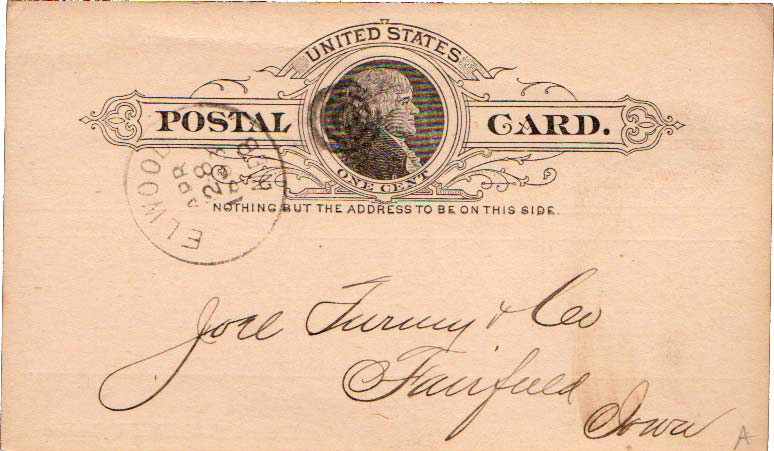 UNITED STATES
POSTAL CARD.
ONE CENT
NOTHING BUT THE ADDRESS TO BE ON THIS SIDE.
ELWOOD
APR
28
Joel Turney & Co
Fairfield
Iowa
A